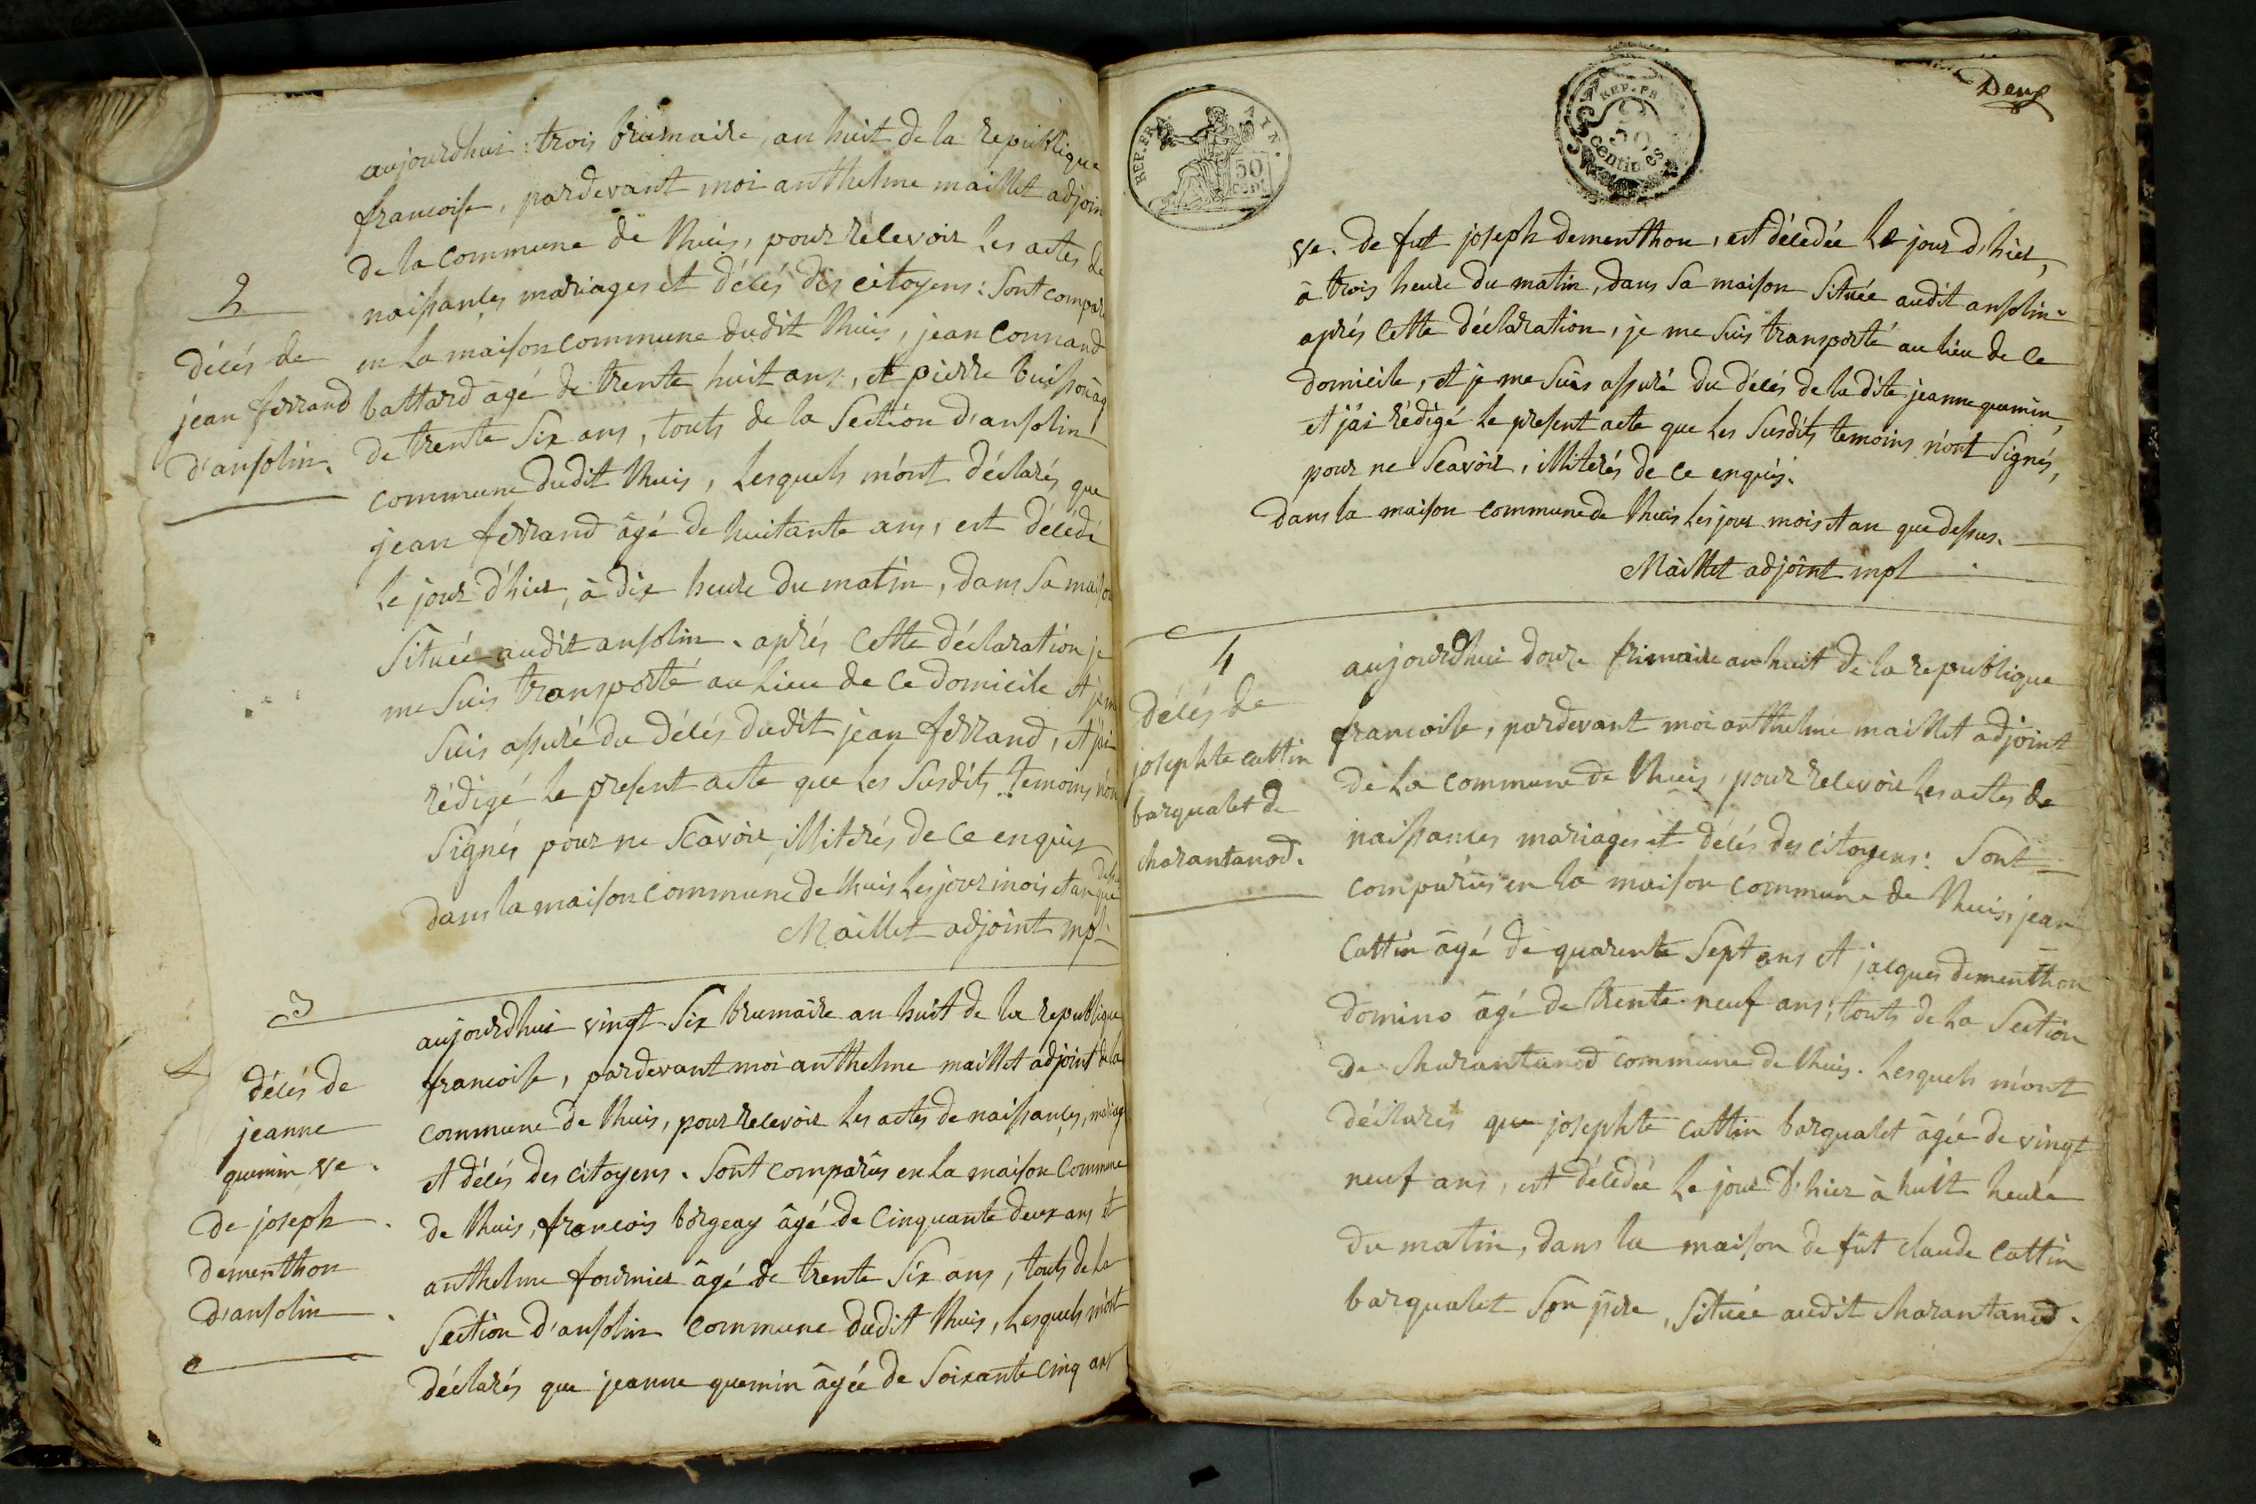 2
décés de
jean ferrand
d'ansolin.
aujourdhui trois brumaire, an huit de la republique
francoise, pardevant moi anthelme maillet adjoin
de la commune de Vhuis, pour recevoir les actes de
naissances mariages et décés des citoyens: Sont compar
en la maison commune dudit Vhuis, jean Connand
battard âgé de trente huit ans, et pierre buisson ag
de trente Six ans, touts de la Section d'ansolin
commune dudit Vhuis, Lesquels m'ont déclarés que
jean ferrand âgé de huitante ans, est décédé
le jour d'hier, à dix heure du matin, dans Sa maison
Située audit ansolin. aprés cette déclaration je
me Suis transporté au lieu de ce domicile et je m
Suis assuré du décés dudit jean ferrand, et j'ai
rédigé le present acte que les Susdits temoins n'on
Signés pour ne Scavoir, illiterés de ce enquis
dans la maison commune de Vhuis les jour mois et an que dessu
Maillet adjoint mpl
3
décés de
jeanne
quemin ve.
de joseph
dementhon
d'ansolin
aujourdhui vingt Six brumaire an huit de la republique
francoise, pardevant moi anthelme maillet adjoint de la
commune de Vhuis, pour recevoir les actes de naissances, mariag
et décés des citoyens. Sont comparûs en la maison commune
de Vhuis, francois borgeay âgé de cinquante deux ans et
anthelme fournier âgé de trente Six ans, touts de la
Section d'ansolin commune dudit Vhuis, Lesquels m'ont
déclarés que jeanne quemin âgée de Soixante cinq ans
REP. FRA. AIN.
50 CENT
REP. FR
50
centimes
Deux
ve. de fut joseph dementhon, est décédée Le jour d'hier,
à trois heure du matin, dans Sa maison Située audit ansolin.
aprés cette déclaration, je me Suis transporté au lieu de ce
domicile, et je me Suis assuré du décés de la dite jeanne quemin,
et j'ai rédigé le present acte que les Susdits temoins n'ont Signés,
pour ne Scavoir, illiterés de ce enquis.
dans la maison commune de Vhuis les jour mois et an que dessus.
Maillet adjoint mpl
4
décés de
josephte cattin
barqualet de
charantanod.
aujourdhui douze frimaire an huit de la republique
francoise, pardevant moi anthelme maillet adjoint
de la commune de Vhuis, pour recevoir les actes de
naissances mariages et décés des citoyens: Sont
comparûs en la maison commune de Vhuis, jean
Cattin âgé de quarente Sept ans et jacques dementhon
domino âgé de trente neuf ans; touts de la Section
de charantanod commune de Vhuis. Lesquels m'ont
déclarés que josephte cattin barqualet âgée de vingt
neuf ans, est décédée le jour d'hier à huit heure
du matin, dans la maison de fût claude Cattin
barqualet Son père, Située audit charantanod.